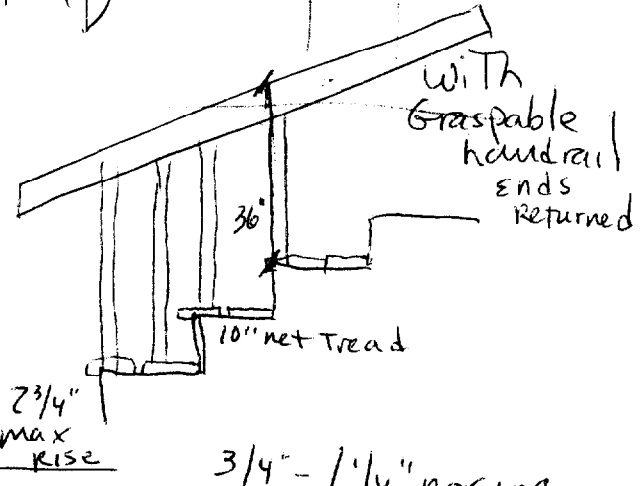 WITH
Graspable
handrail
ENDS
Returned
36"
10" net Tread
7 3/4"
max
RISE
3/4" - 1 1/4"